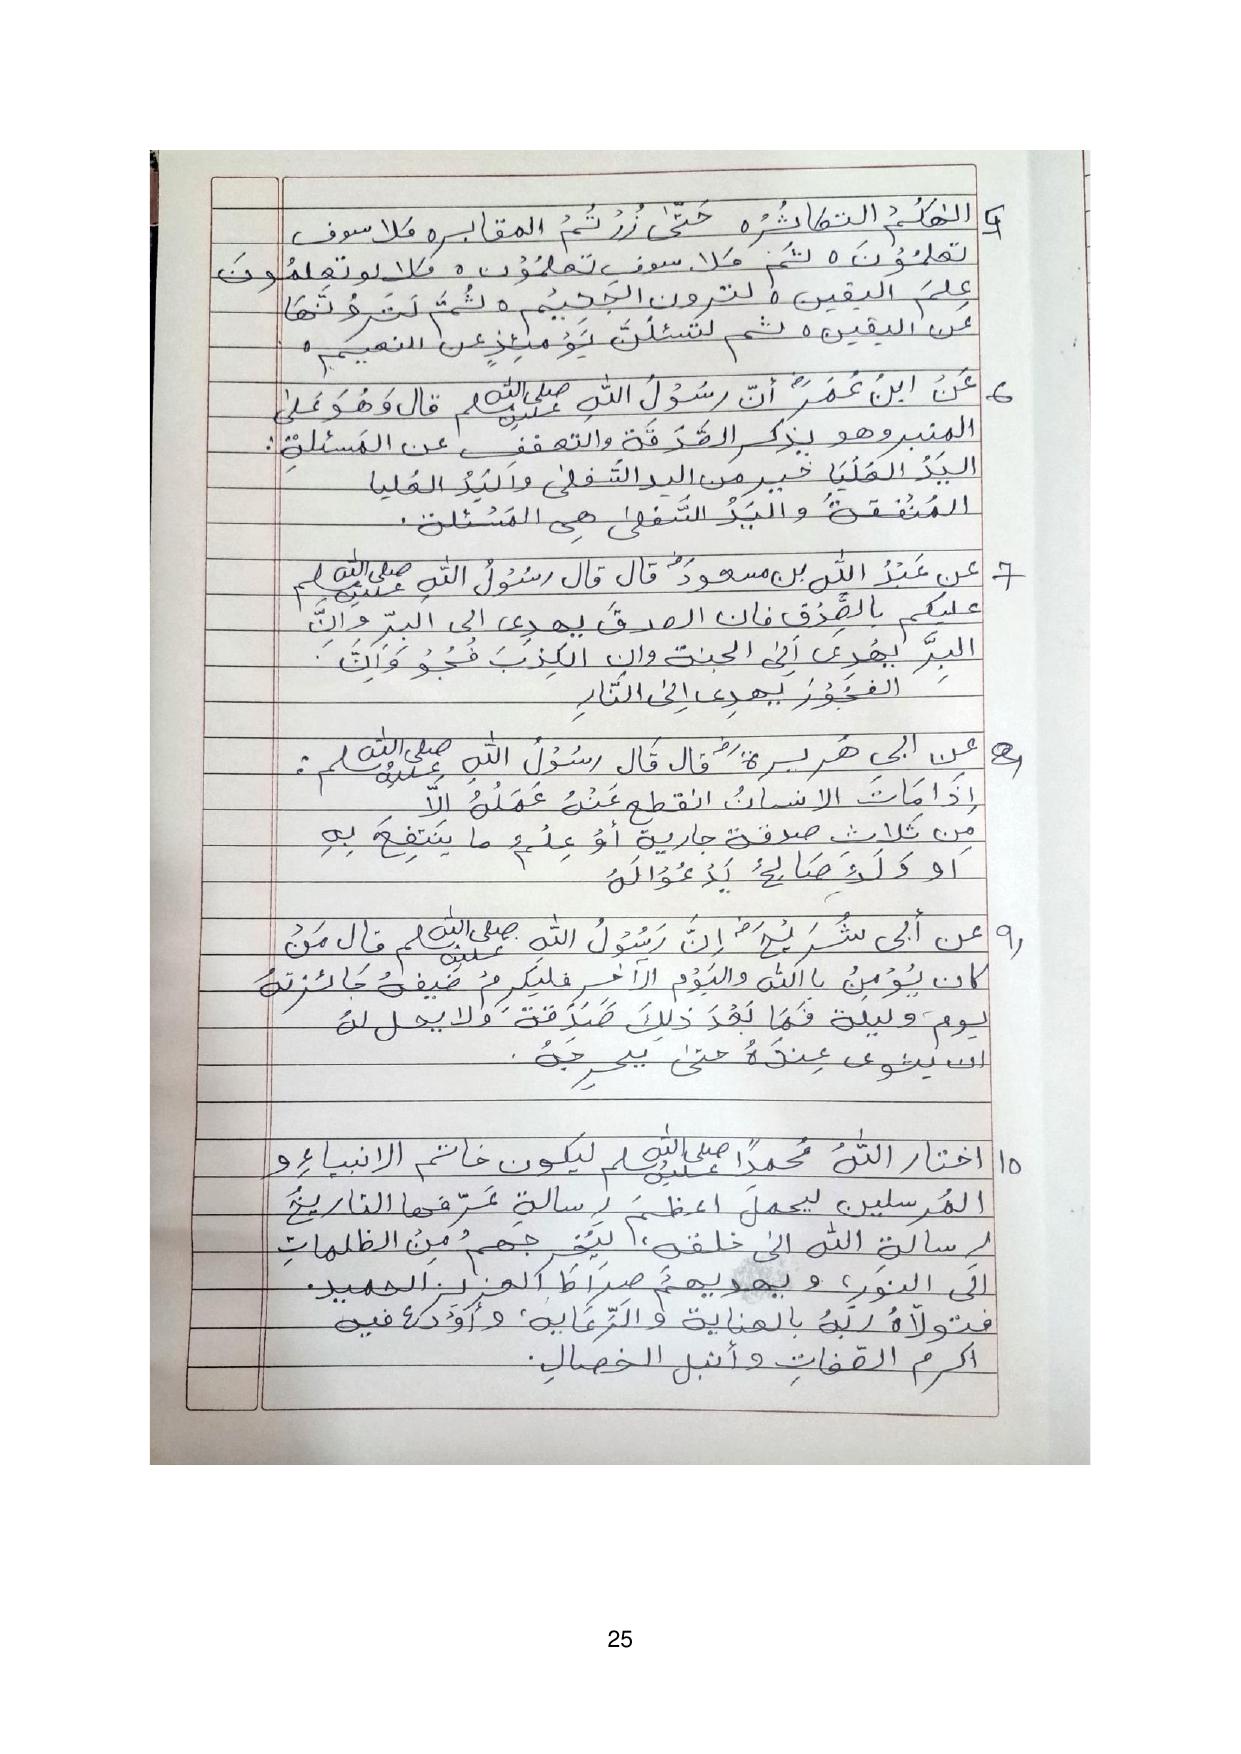 5 الهٰكُمُ التكاثُرُ ه حَتّٰى زُرْتُمُ المقابر ه كلا سوف
تعلمُوْنَ ه ثم كلا سوف تعلمُوْن ه كلا لو تعلمُونَ
عِلمَ اليقين ه لترون الجَحِيْم ه ثُمَّ لَتَرَوُنَّهَا
عَن اليقين ه ثم لتُسْئلُنَّ يَوْمَئِذٍ عن النعيم ه
6. عَنْ ابنِ عُمَرَؓ أنّ رسُوْلُ اللهِ صلى الله عليه وسلم قال وَهُوَ عَلىٰ
المنبر وهو يذكر الصَّدَقَة والتعفف عن المَسئلةِ :
اليَدُ العُلْيَا خيير من اليد السَّفلىٰ وَاليَدُ العُليا
المُنْفقةُ و اليَدُ السَّفلىٰ هى المَسْئلة .
7 عن عَبْدُ اللهِ بن مسعودؓ قال قال رسُوْلُ اللهِ صلى الله عليه وسلم
عليكم بالصِّدْق فان الصدقَ يهدِى الى البرّ وانَّ
البِرَّ يَهْدِىَ اِلىٰ الجنة وان الكِذبَ فُجُوْ وَاِنَّ .
الفجُوْرَ يَهدِى اِلىٰ النَّارِ
8, عن ابى هُريرةؓ قال قَال رسُوْلُ اللهِ صلى الله عليه وسلم :
إذَا مَاتَ الانسانُ انقطع عَنْهُ عَمَلُهُ الَّا
مِن ثَلاثِ صدقة جارية أوْ عِلمٌ ما يَنتفِعَ بِهِ
اَو وَلَدٌ صَالِحٌ يَدْعُوْا لَهُ
9, عن أبى شُرَيْحؓ اِنَّ رَسُوْلُ اللهِ صلى الله عليه وسلم قال مَنْ
كان يُؤْمِنُ باالله واليَوْم الآخر فليكرمُ ضَيفهُ جَائزتهُ
يوم وليلة فَمَا بَعْدَ ذلِكَ صَدَقةَ وَلا يحل لهُ
ان يثوى عِندَهُ حتىٰ يحرِجَهُ .
10 اختار اللهُ مُحمدًا صلى الله عليه وسلم ليكون خاتم الانبياءِ و
المُرسلين ليحملَ اعظمَ رسالةِ عَرّفها التاريخُ
رسالةِ الله الىٰ خلقه، ليُخرجهمْ مِنْ الظلماتِ
اِلَى النورِ، و يهديهمُ صِرَاطَ العزيز الحميد.
فتولّاهُ رَبّهُ بالعناية وَالرّعَايه، وأوْدَعَ فيه
اكرم الصّفاتِ وأنبل الخصالِ.
25